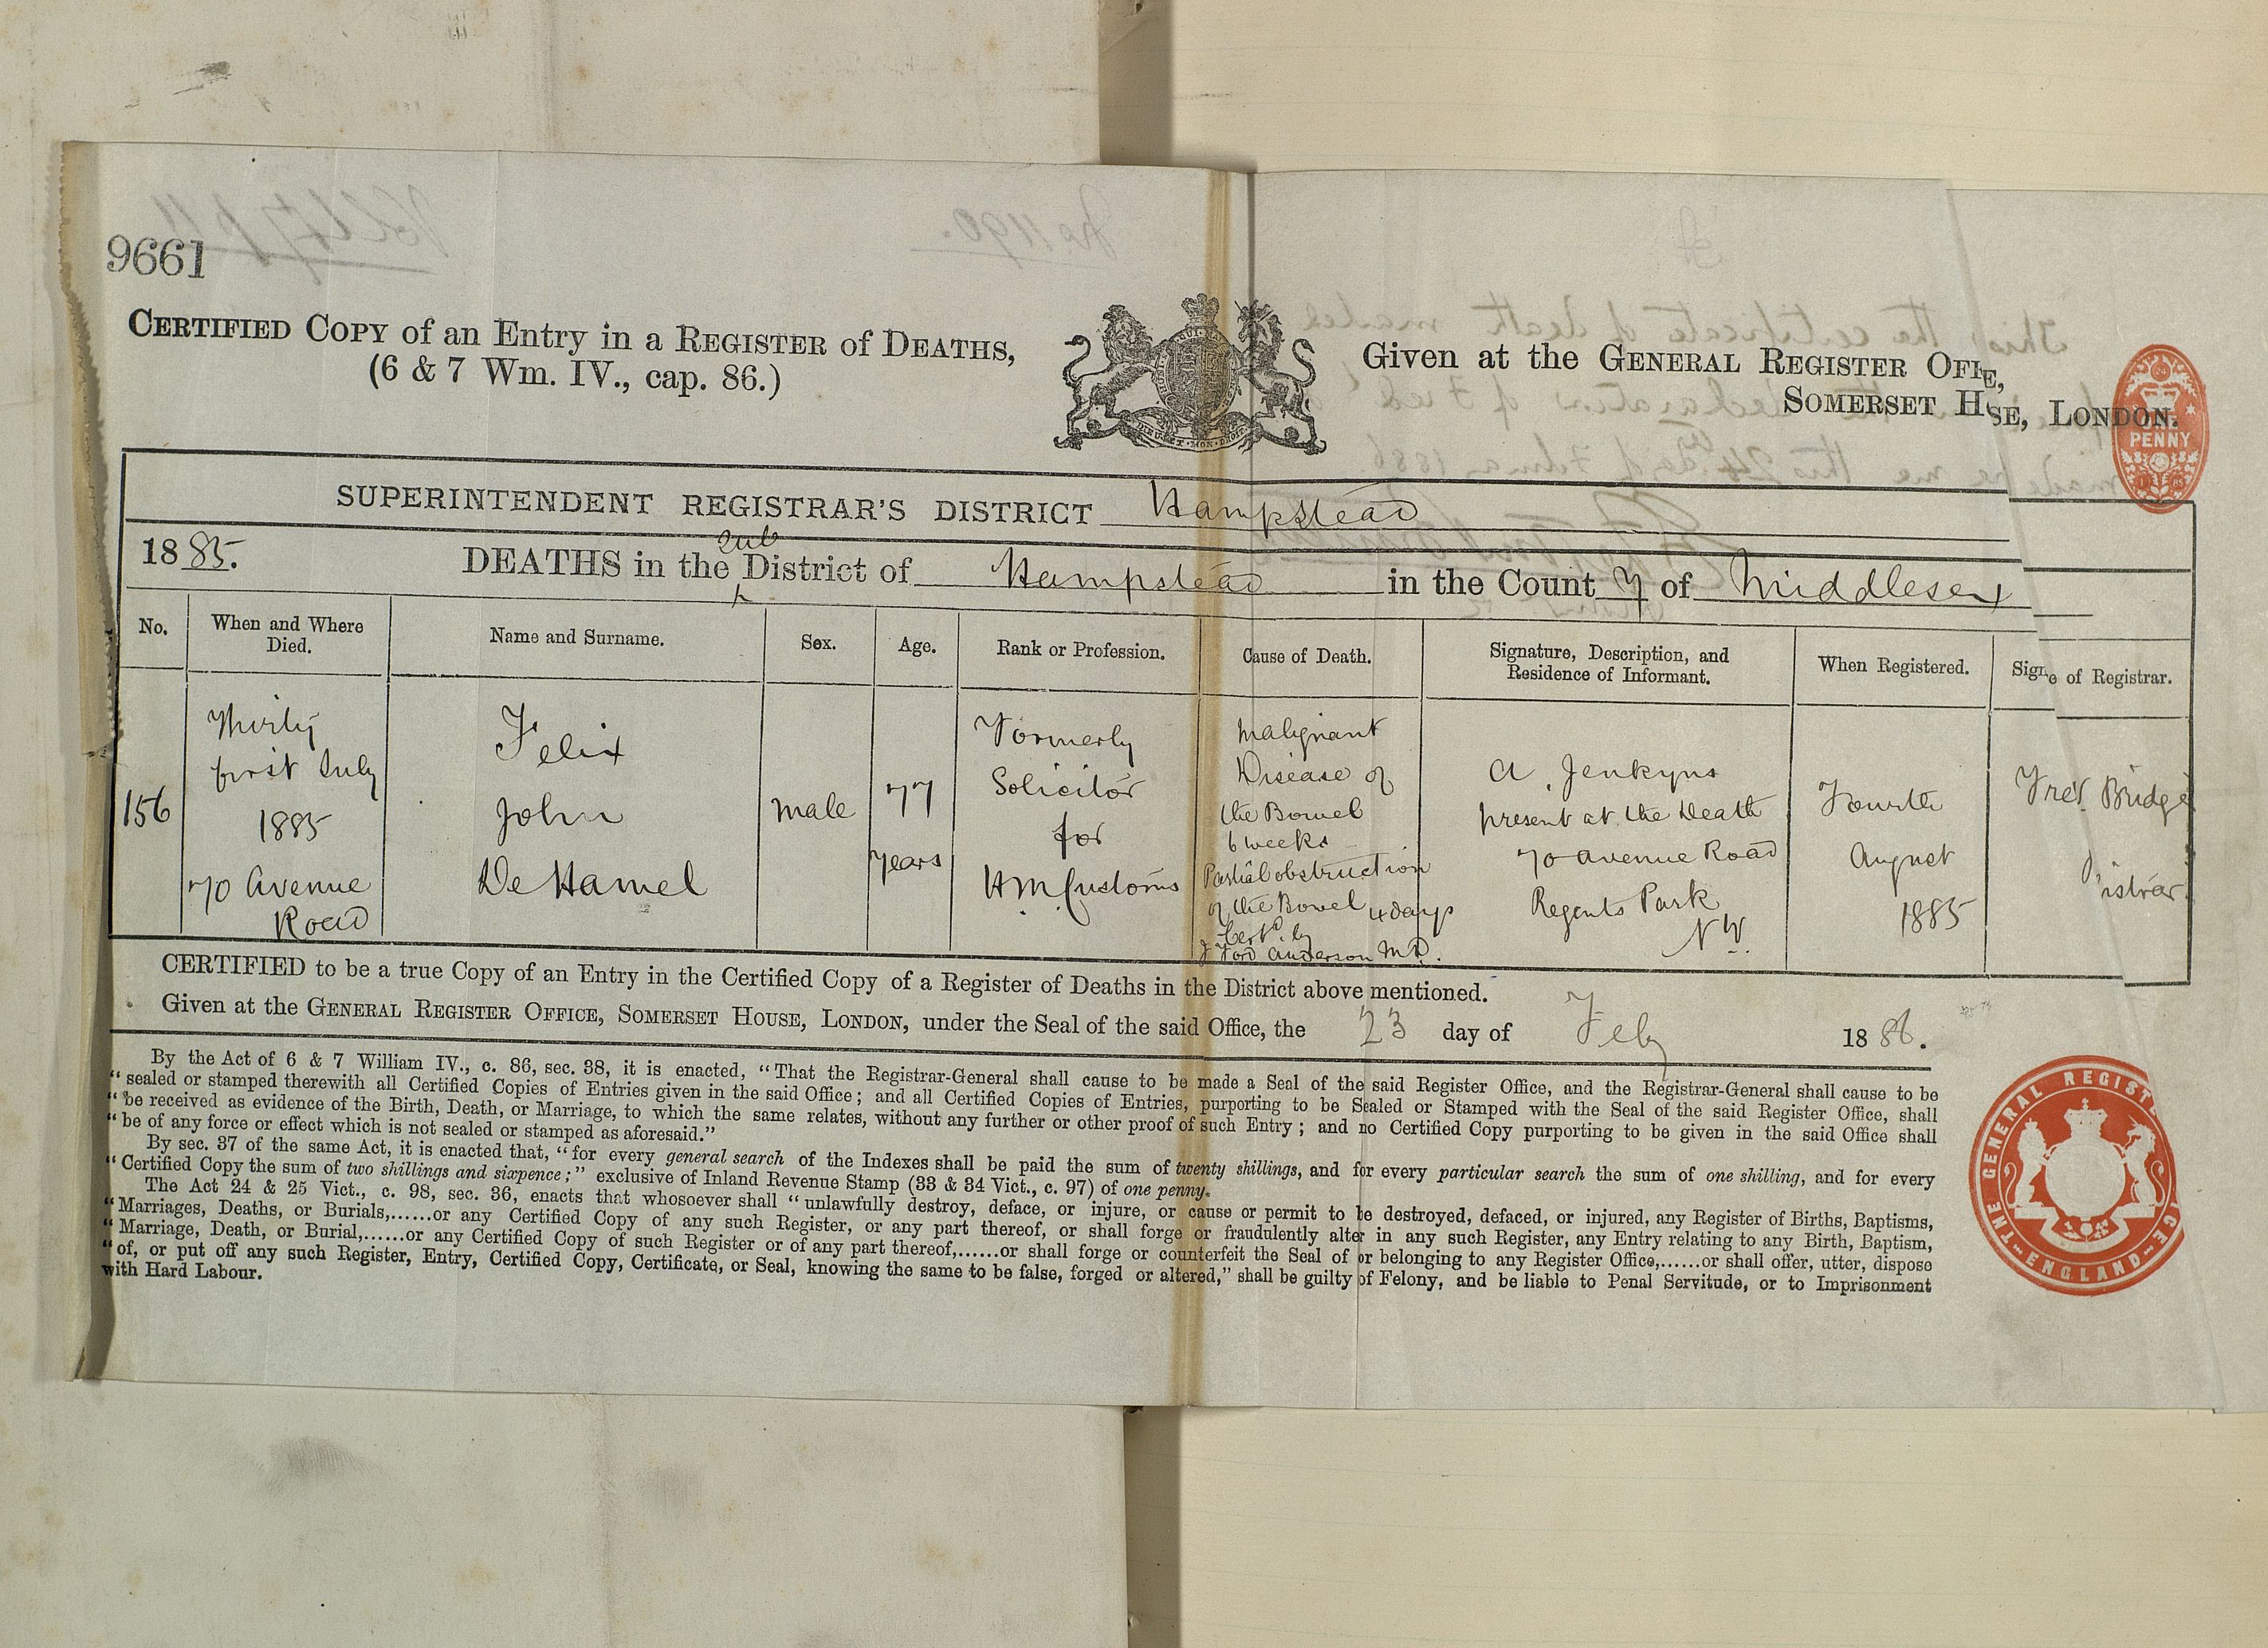 9661
CERTIFIED COPY of an Entry in a REGISTER of DEATHS,
(6 & 7 Wm. IV., cap. 86.)
Given at the GENERAL REGISTER OFFIE,
SOMERSET HSE, LONDON.
PENNY
SUPERINTENDENT REGISTRAR'S DISTRICT Hampstead
1885. DEATHS in the Sub District of Hampstead in the County of Middlesex
No.
When and Where
Died.
Name and Surname.
Sex.
Age.
Rank or Profession.
Cause of Death.
Signature, Description, and
Residence of Informant.
When Registered.
Signe of Registrar.
156
Thirty
first July
1885
70 Avenue
Road
Felix
John
De Hamel
Male
77
years
Formerly
Solicitor
for
H.M. Customs
Malignant
Disease of
the Bowel
6 weeks
Partial obstruction
of the Bowel 4 days
Certd. by
J Ford Anderson M.D.
A. Jenkyns
present at the Death
70 Avenue Road
Regents Park
N W.
Fourth
August
1885
Fredk. Bridge
istrar.
CERTIFIED to be a true Copy of an Entry in the Certified Copy of a Register of Deaths in the District above mentioned.
Given at the GENERAL REGISTER OFFICE, SOMERSET HOUSE, LONDON, under the Seal of the said Office, the 23 day of Feby 1886.
By the Act of 6 & 7 William IV., c. 86, sec. 38, it is enacted, "That the Registrar-General shall cause to be made a Seal of the said Register Office, and the Registrar-General shall cause to be
"sealed or stamped therewith all Certified Copies of Entries given in the said Office; and all Certified Copies of Entries, purporting to be Sealed or Stamped with the Seal of the said Register Office, shall
"be received as evidence of the Birth, Death, or Marriage, to which the same relates, without any further or other proof of such Entry; and no Certified Copy purporting to be given in the said Office shall
"be of any force or effect which is not sealed or stamped as aforesaid."
By sec. 37 of the same Act, it is enacted that, "for every general search of the Indexes shall be paid the sum of twenty shillings, and for every particular search the sum of one shilling, and for every
"Certified Copy the sum of two shillings and sixpence;" exclusive of Inland Revenue Stamp (33 & 34 Vict., c. 97) of one penny.
The Act 24 & 25 Vict., c. 98, sec. 36, enacts that whosoever shall "unlawfully destroy, deface, or injure, or cause or permit to be destroyed, defaced, or injured, any Register of Births, Baptisms,
"Marriages, Deaths, or Burials,......or any Certified Copy of any such Register, or any part thereof, or shall forge or fraudulently alter in any such Register, any Entry relating to any Birth, Baptism,
"Marriage, Death, or Burial,......or any Certified Copy of such Register or of any part thereof,......or shall forge or counterfeit the Seal of or belonging to any Register Office,......or shall offer, utter, dispose
"of, or put off any such Register, Entry, Certified Copy, Certificate, or Seal, knowing the same to be false, forged or altered," shall be guilty of Felony, and be liable to Penal Servitude, or to Imprisonment
with Hard Labour.
THE GENERAL REGISTE ICE
ENGLAND